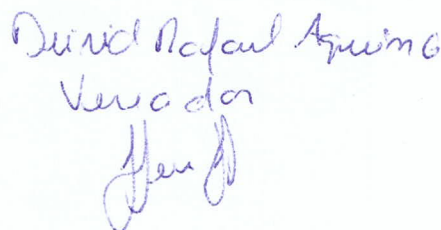 Deivid Rafael Aquino
Vereador